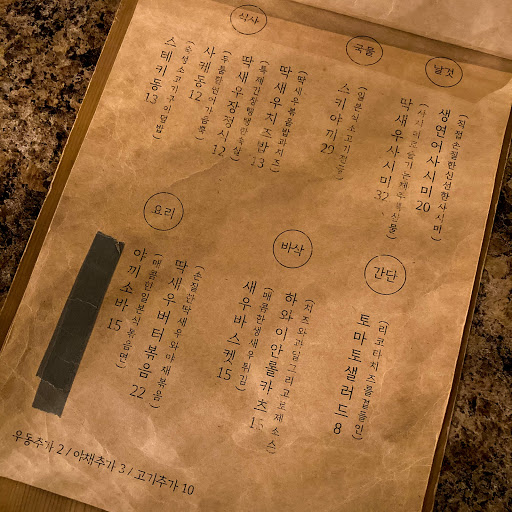 날것
(직접손질한신선한사시미)
생연어사시미 20
(사시미로즐기는제주특산물)
딱새우사시미 32
국물
(일본식소고기전골)
스키야끼 29
식사
(딱새우볶음밥과치즈)
딱새우치즈밥 13
딱새우장정식 12
(두툼한연어가듬뿍)
사케동 12
(숙성소고기구이덮밥)
스테키동 13
간단
(리코타치즈를곁들인)
토마토샐러드 8
바삭
(치즈와과일그리고로제소스)
하와이안롤카츠 15
(매콤한생새우튀김)
새우바스켓 15
요리
(손질한딱새우와야채볶음)
딱새우버터볶음 22
(매콤한일본식볶음면)
야끼소바 15
우동추가 2 / 야채추가 3 / 고기추가 10